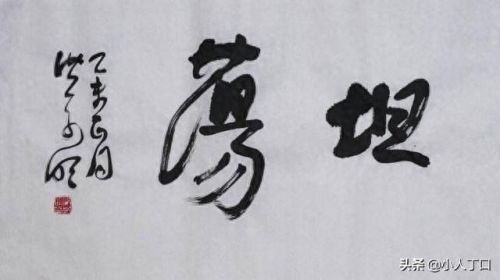 坦蕩
乙未正月
头条 @小人丁口